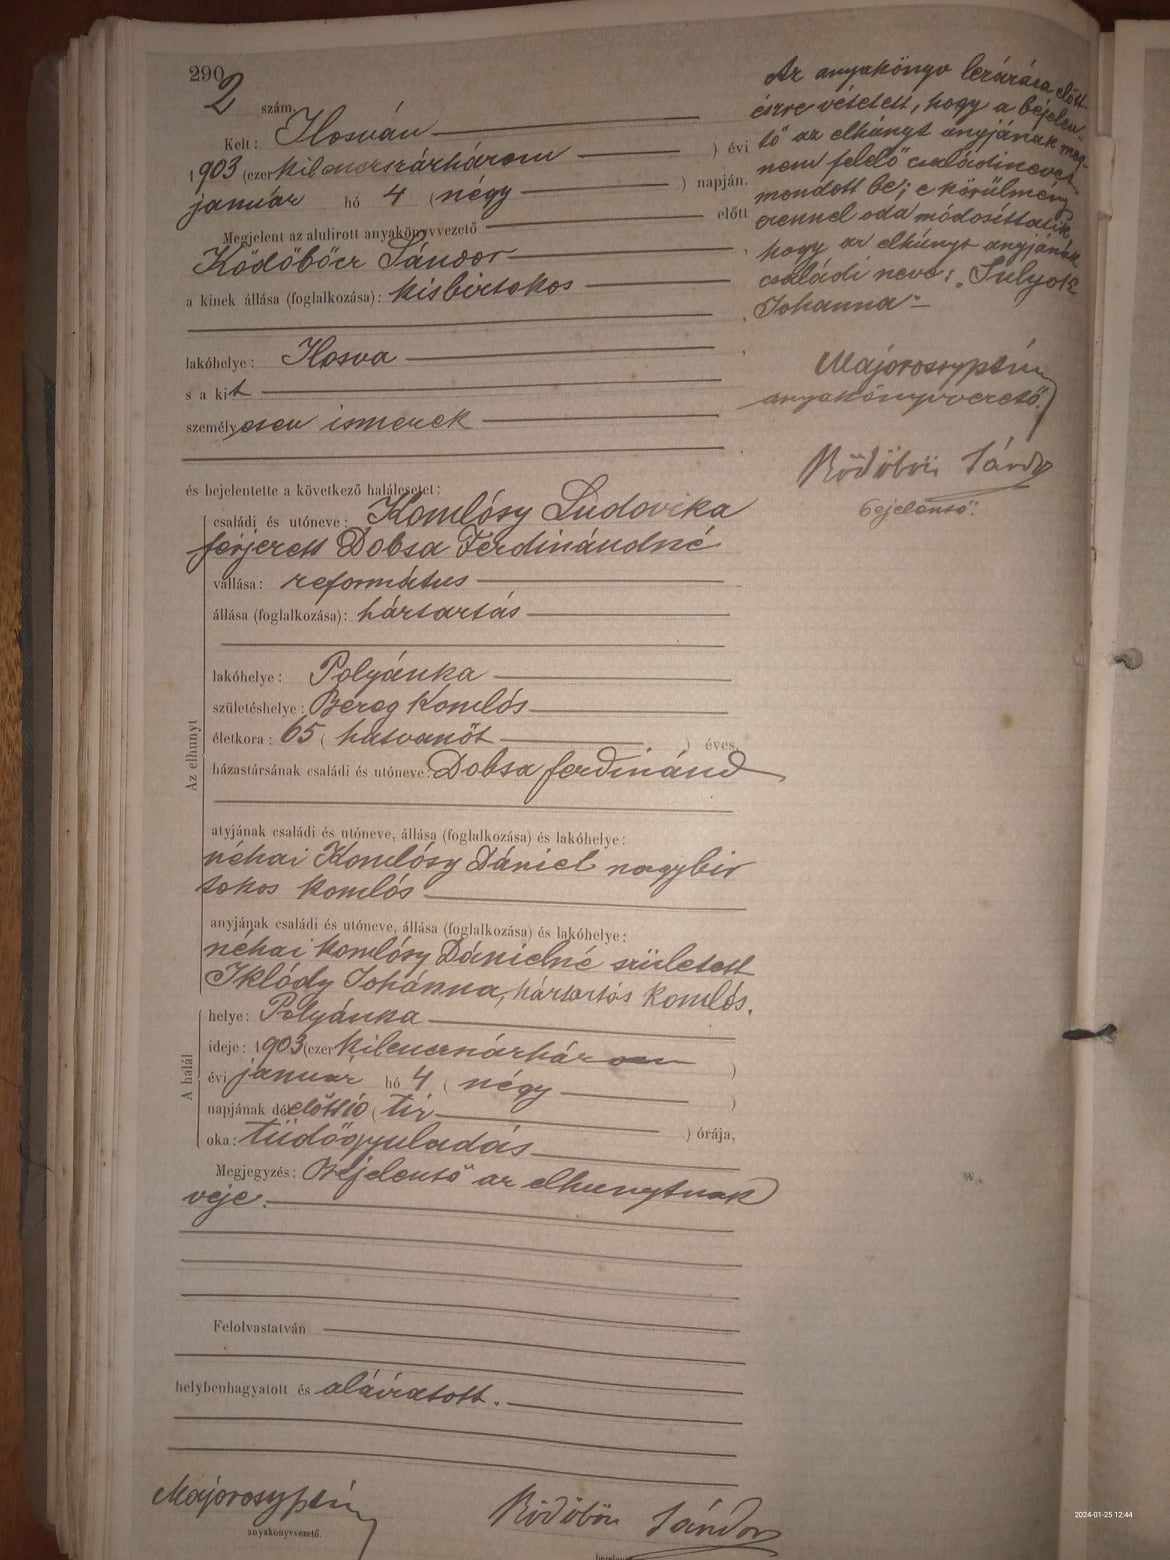 290
2 szám.
Kelt: Ilosván
1903 (ezer kilencszázhárom ) évi
január hó 4 (négy ) napján.
Megjelent az alulirott anyakönyvvezető előtt
Ködöböcz Sándor
a kinek állása (foglalkozása): kisbirtokos
lakóhelye: Ilosva
s a kit
személyesen ismerek
és bejelentette a következő halálesetet:
családi és utóneve: Komlósy Ludovika
férjezett Dobsa Ferdinándné
vallása: református
állása (foglalkozása): háztartás
lakóhelye: Polyánka
születéshelye: Bereg Komlós
életkora: 65 (hatvanöt ) éves.
házastársának családi és utóneve: Dobsa ferdinánd
Az elhunyt
atyjának családi és utóneve, állása (foglalkozása) és lakóhelye:
néhai Komlósy Dániel nagybir
tokos Komlós
anyjának családi és utóneve, állása (foglalkozása) és lakóhelye:
néhai Komlósy Dánielné született
Iklódy Johánna, háztartás Komlós.
A halál
helye: Polyánka
ideje: 1903 (ezer kilencszázhárom )
évi január hó 4 (négy )
napjának délelőtti 10 (tíz ) órája,
oka: tüdőgyuladás
Megjegyzés: Bejelentő az elhunytnak
veje.
Felolvastatván
helybenhagyatott és aláíratott.
Majorossy
anyakönyvvezető.
Ködöböcz Sándor
Az anyakönyv lezárása előtt
észre vétetett, hogy a bejelen-
tő az elhúnyt anyjának meg-
nem felelő családinevet
mondott be; e körülmény
ezennel oda módosíttatik,
hogy az elhúnyt anyjának
családi neve: „Sulyok
Johanna"
Majorossy
anyakönyvvezető.
Ködöböcz Sándor
bejelentő.
2024-01-25 12:44